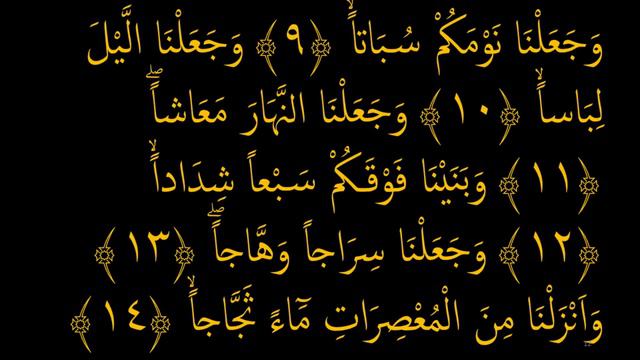 وَجَعَلْنَا نَوْمَكُمْ سُبَاتاًۙ ﴿٩﴾ وَجَعَلْنَا الَّيْلَ
لِبَاساًۙ ﴿١٠﴾ وَجَعَلْنَا النَّهَارَ مَعَاشاًۖ
﴿١١﴾ وَبَنَيْنَا فَوْقَكُمْ سَبْعاً شِدَاداًۙ
﴿١٢﴾ وَجَعَلْنَا سِرَاجاً وَهَّاجاًۖ ﴿١٣﴾
وَاَنْزَلْنَا مِنَ الْمُعْصِرَاتِ مَٓاءً ثَجَّاجاًۙ ﴿١٤﴾